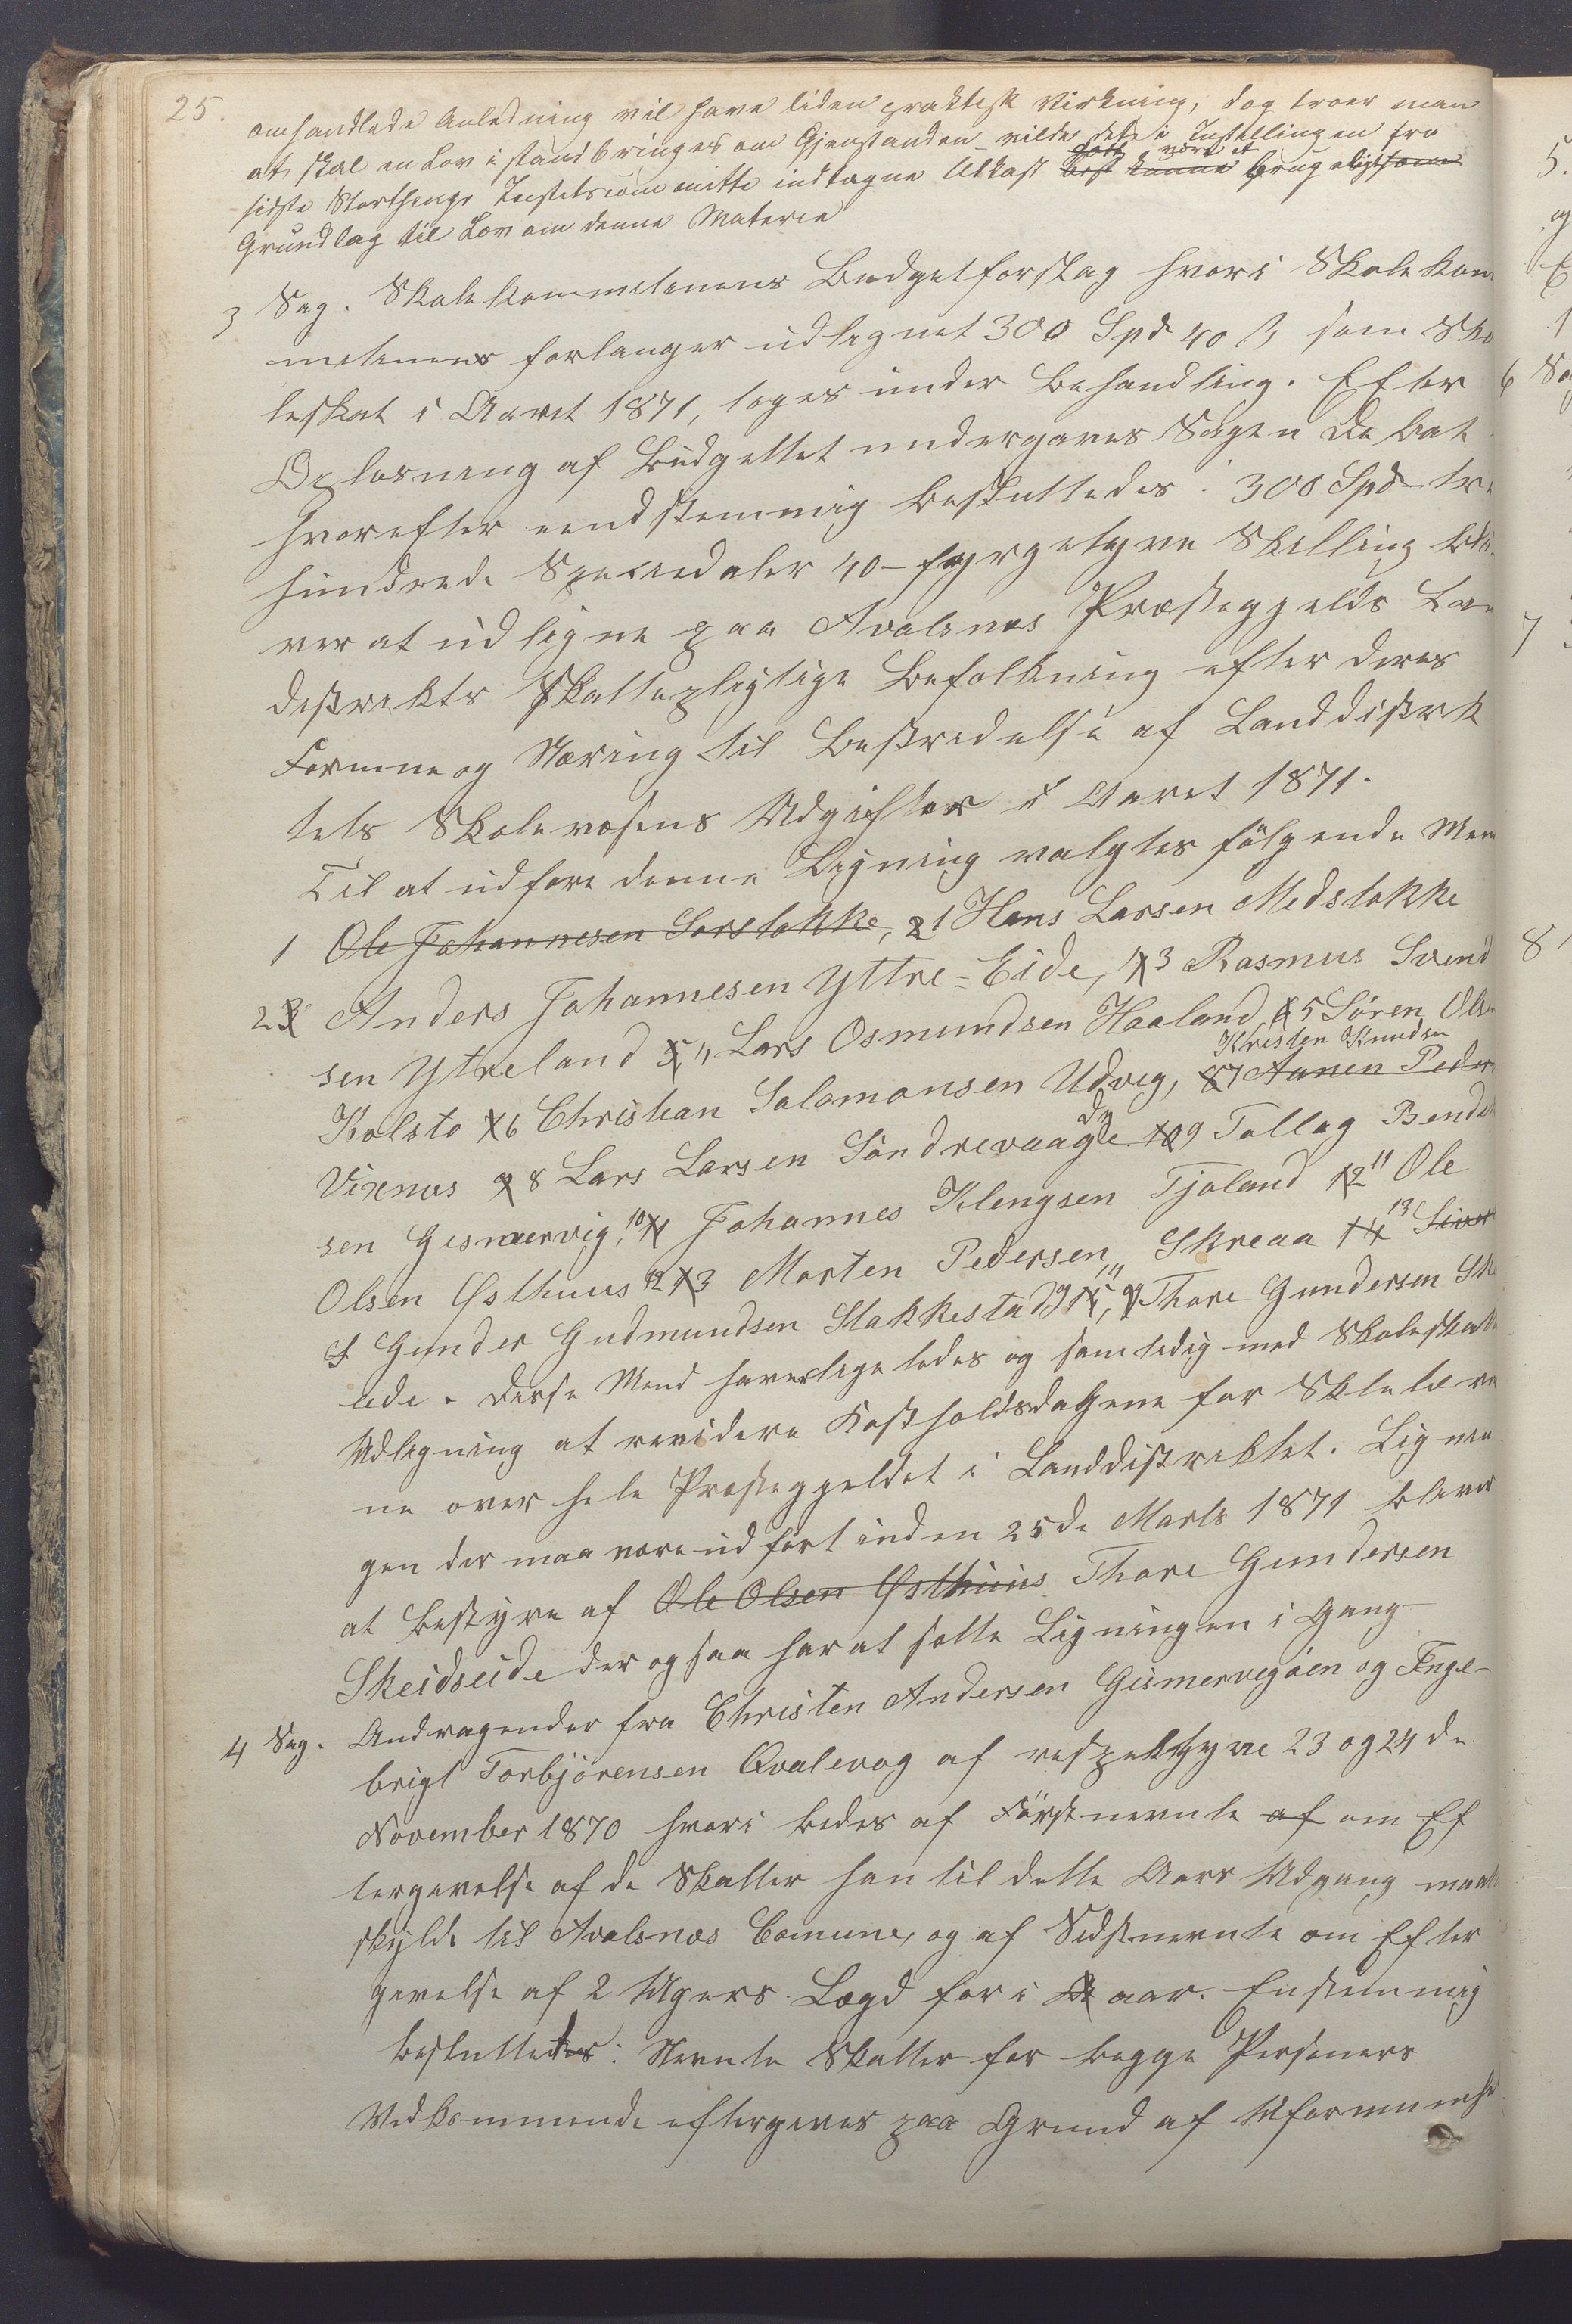 25.
omhandlede Anledning vil have liden praktisk Virkning, dog troer man
at, skal en Lov istandbringes om Gjenstanden vilde det i Indstillingen fra
sidste Storthings comitte indtagne Udkast best kunne godt være et brugeligt som
Grundlag til Lov om denne Materie
3 Sag. Skolekommisionens Budgetforslag hvori Skolekom
misionens forlanger udlignet 300 Spd 40 ß som Sko
leskat i Aaret 1871, toges under Behandling. Efter
Oplæsning af Budgettet undergaves Sagen Debat
hvorefter eendstemmig besluttedes: 300 Spd tre
hundrede Speciedaler 40 - fyrgetyve Skilling bli
ver at udligne paa Avalsnes Præstegjelds Lan
distrikts Skattepligtige Befolkning efter deres
Formue og Næring til Bestridelse af Landdistrik
tets Skolevæsens Udgifter i Aaret 1871.
Til at udføre denne Ligning valgtes følgende Mæn
1 Ole Johannesen Sørstokke, 2 1 Hans Larsen Medstokke
2 3 Anders Johannesen Yttre=Eide, 4 3 Rasmus Svend
sen Ytreland 5 4 Lars Osmundsen Haaland 6 5 Sören Olsen
Kolstø 7 6 Christian Salomonsen Udvig, 8 7 Aanen Peder Kristen Knudsen
Vixenes 9 8 Lars Larsen Söndrevaage 10 9 Tollag Bendik
sen Gismervig, 10 11 Johannes Klengsen Tjøland 12 11 Ole
Olsen Østhuus 12 13 Morten Pedersen Skreaa 14 13 Sivert
Gunder Gudmundsen Stakkestad 15 14, Thore Gundersen Ske
ede. Disse Mend haver ligeledes og samtidig med Skoleskatte
Udligning at revidere Kostholdsdagene for Skolelærer
ne over hele Præstegjeldet i Landdistriktet. Lignin
gen der maa være udført inden 25de Marts 1871 bliver
at bestyre af Ole Olsen Østhuus Thore Gundersen
Skeidseide der ogsaa har at sætte Ligningen i Gang
4 Sag. Andragender fra Christen Andersen Gismervigøen og Enge-
brigt Torbjörensen Qvalevog af respektive 23 og 24 de
November 1870 hvori bedes af Förstnevnte af om Ef
tergivelse af de Skatter han til dette Aars Udgang maatte
skylde til Avalsnes Comune, og af Sidstnevnte om Efter
givelse af 2 Ugers Lægd for i aar. Enstemmig
besluttedes: Nevnte Skatter for begge Personers
Vedkommende eftergives paa Grund af Uformuenhed